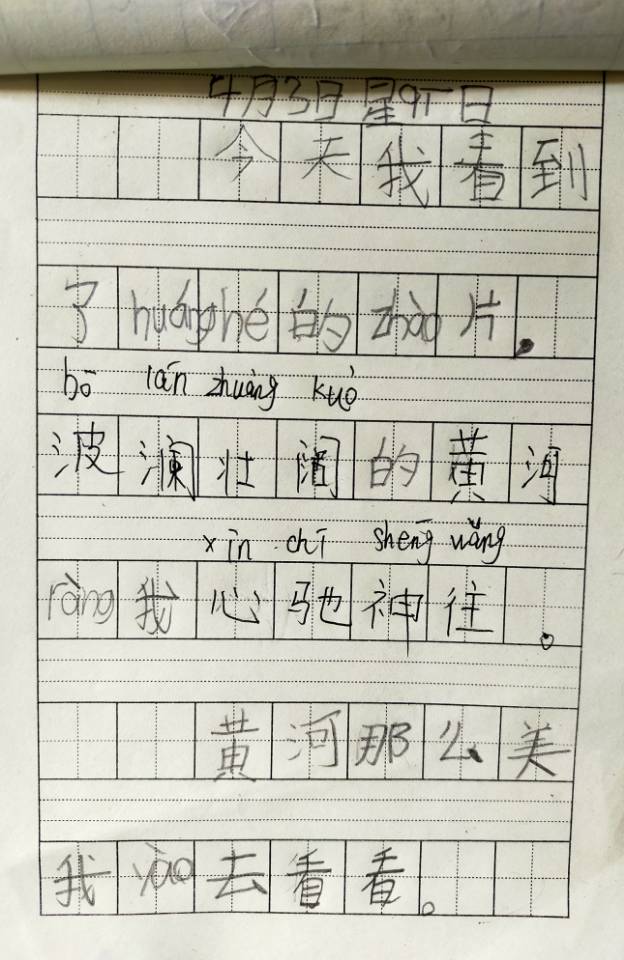 4月3日星期日
今天我看到
了huánghé的zhào片.
bō lán zhuàng kuò
波澜壮阔的黄河
xīn chí shéng wǎng
ràng我心驰神往。
黄河那么美
我yào去看看。